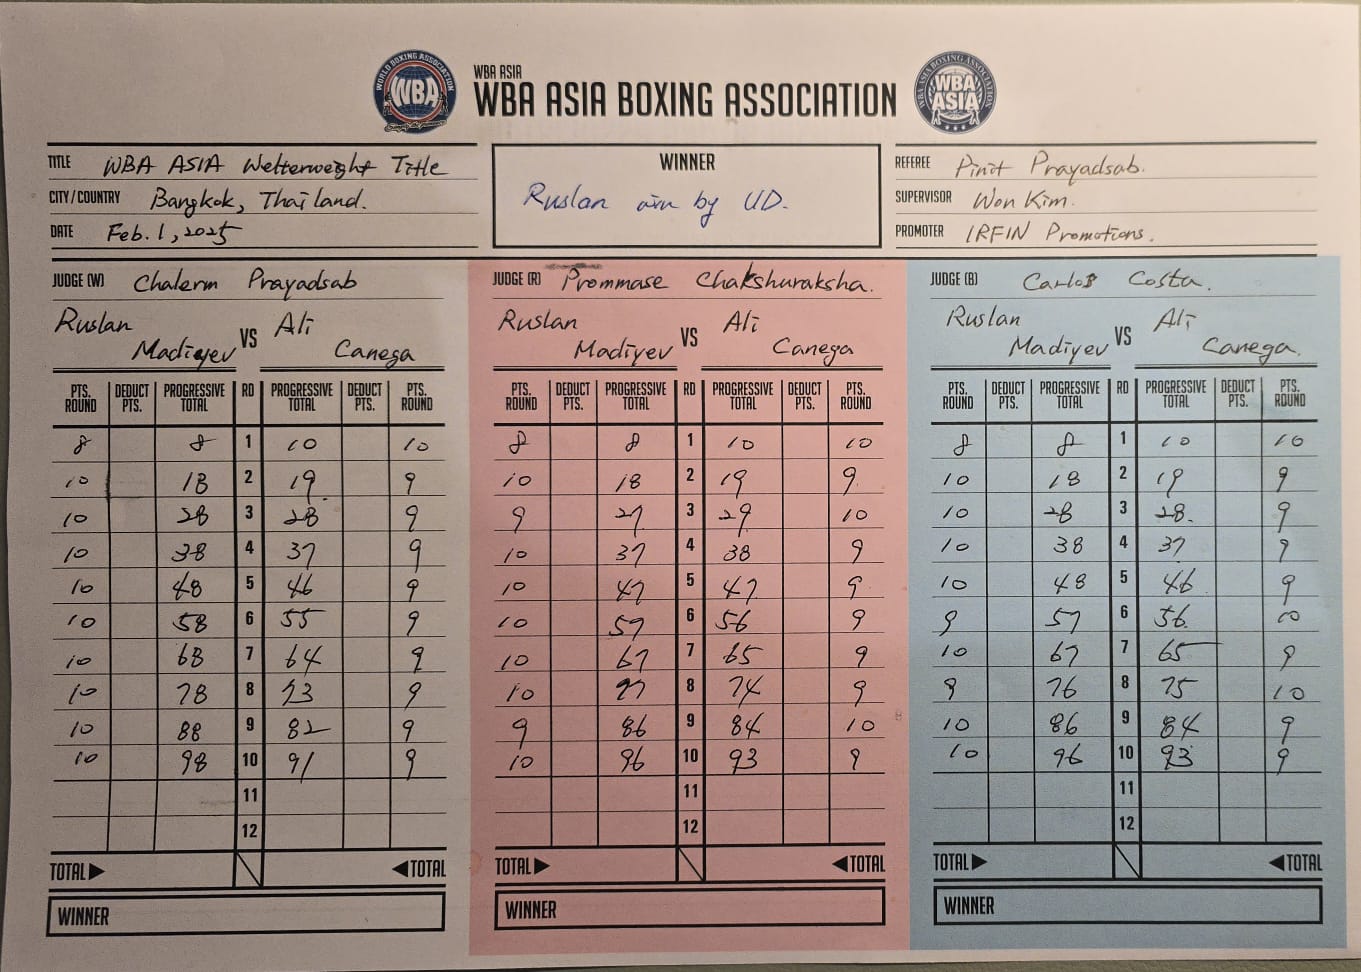 WORLD BOXING ASSOCIATION
WBA
WBA ASIA
WBA ASIA BOXING ASSOCIATION
WBA ASIA BOXING ASSOCIATION
WBA
ASIA
TITLE WBA ASIA Welterweight Title
CITY/COUNTRY Bangkok, Thailand.
DATE Feb. 1, 2025
WINNER
Ruslan win by UD.
REFEREE Pinit Prayadsab.
SUPERVISOR Won Kim.
PROMOTER IRFIN Promotions.
JUDGE (W) Chalerm Prayadsab
Ruslan Madiyev VS Ali Canega
PTS. ROUND DEDUCT PTS. PROGRESSIVE TOTAL RD PROGRESSIVE TOTAL DEDUCT PTS. PTS. ROUND
8 8 1 10 10
10 18 2 19. 9
10 28 3 28 9
10 38 4 37 9
10 48 5 46 9
10 58 6 55 9
10 68 7 64 9
10 78 8 73 9
10 88 9 82 9
10 98 10 91 9
11
12
TOTAL TOTAL
WINNER
JUDGE (R) Prommase Chakshuraksha.
Ruslan Madiyev VS Ali Canega
PTS. ROUND DEDUCT PTS. PROGRESSIVE TOTAL RD PROGRESSIVE TOTAL DEDUCT PTS. PTS. ROUND
8 8 1 10 10
10 18 2 19 9
9 27 3 29 10
10 37 4 38 9
10 47 5 47 9
10 57 6 56 9
10 67 7 65 9
10 77 8 74 9
9 86 9 84 10
10 96 10 93 9
11
12
TOTAL TOTAL
WINNER
JUDGE (B) Carlos Costa.
Ruslan Madiyev VS Ali Canega.
PTS. ROUND DEDUCT PTS. PROGRESSIVE TOTAL RD PROGRESSIVE TOTAL DEDUCT PTS. PTS. ROUND
8 8 1 10 10
10 18 2 19 9
10 28 3 28. 9
10 38 4 37 9
10 48 5 46 9
9 57 6 56. 10
10 67 7 65 9
9 76 8 75 10
10 86 9 84 9
10 96 10 93 9
11
12
TOTAL TOTAL
WINNER